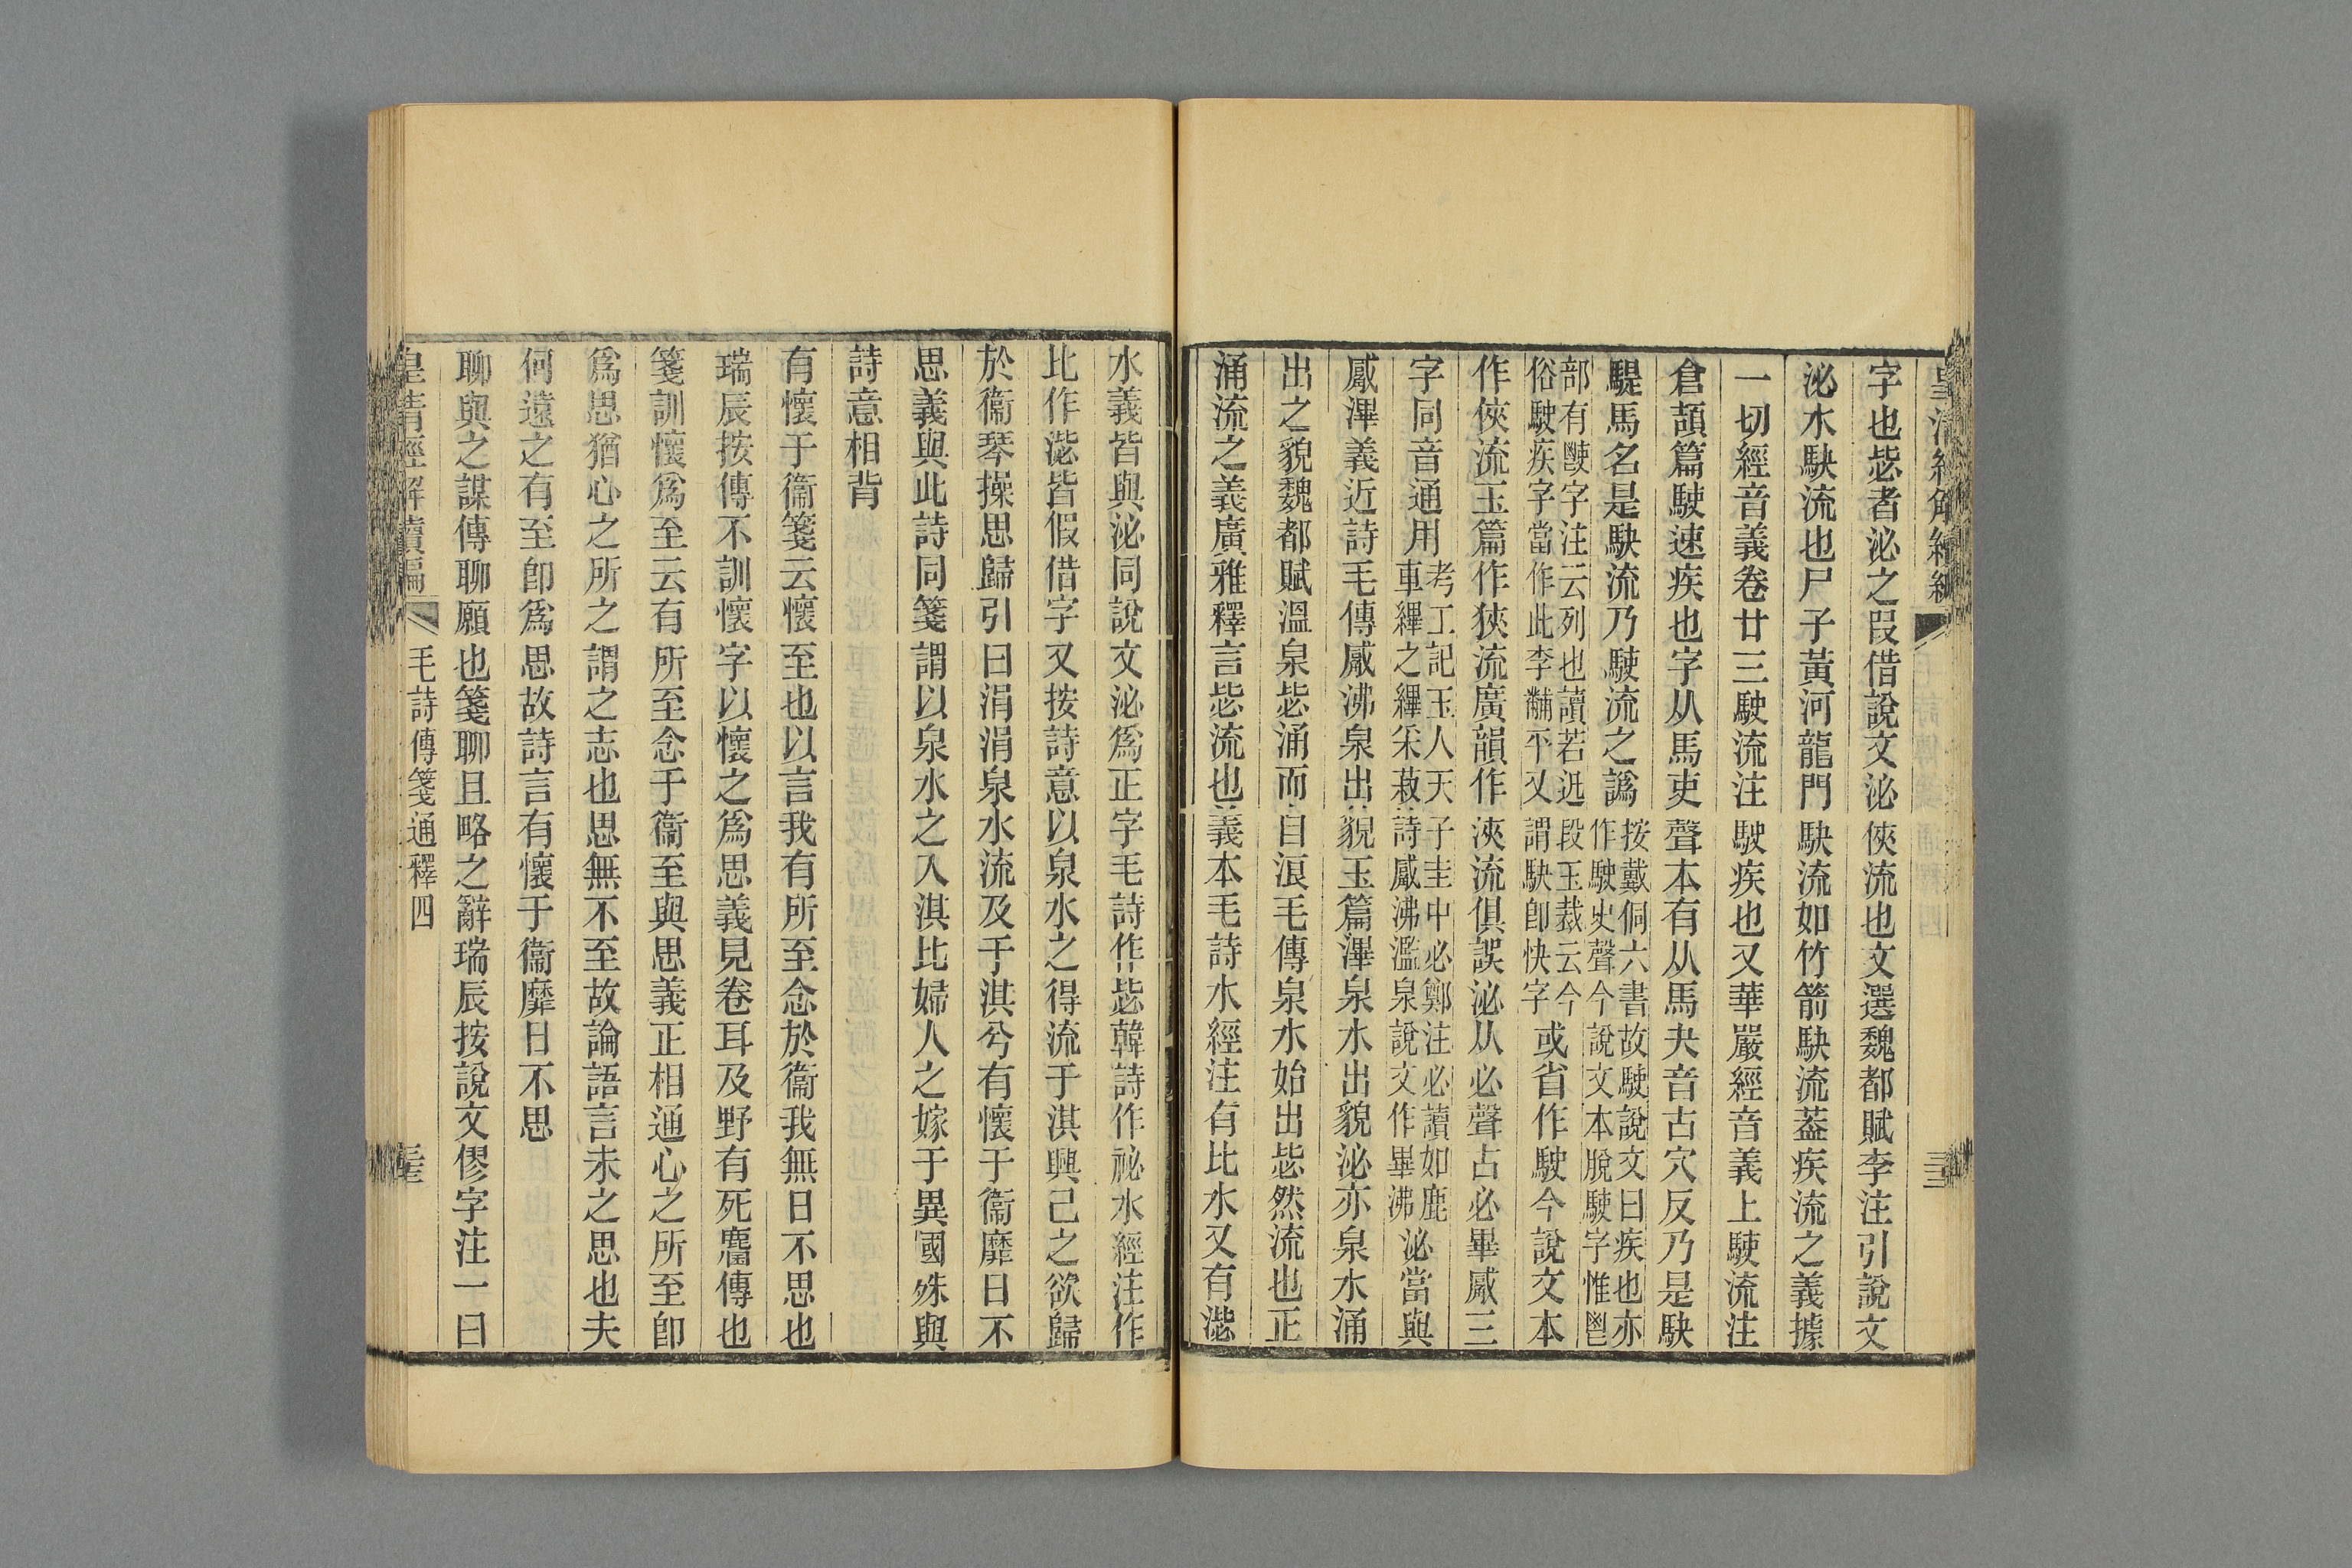 字也毖者泌之叚借說文泌俠流也文選魏都賦李注引說文
泌水駃流也尸子黃河龍門駃流如竹箭駃流葢疾流之義據
一切經音義卷廿三駛流注駛疾也又華嚴經音義上駛流注
倉頡篇駛速疾也字从馬吏聲本有从馬夬音古穴反乃是駃
騠馬名是駃流乃駛流之譌按戴侗六書故駛說文曰疾也亦
作駛史聲今說文本脫駛字惟鬯
部有字注云列也讀若迅段玉裁云今
俗駛疾字當作此李黼平又謂駃卽快字或省作駛今說文本
作俠流玉篇作狹流廣韻作浹流俱誤泌从必聲古必畢觱三
字同音通用考工記玉人天子圭中必鄭注必讀如鹿
車縪之縪采菽詩觱沸濫泉說文作畢沸泌當與
觱滭義近詩毛傳觱沸泉出貌玉篇滭泉水出貌泌亦泉水涌
出之貌魏都賦溫泉毖涌而自浪毛傳泉水始出毖然流也正
涌流之義廣雅釋言毖流也義本毛詩水經注有比水又有泌
水義皆與泌同說文泌爲正字毛詩作毖韓詩作祕水經注作
比作毖皆假借字又按詩意以泉水之得流于淇興己之欲歸
於衞琴操思歸引曰涓涓泉水流及于淇兮有懷于衞靡日不
思義與此詩同箋謂以泉水之入淇比婦人之嫁于異國殊與
詩意相背
有懷于衞箋云懷至也以言我有所至念於衞我無日不思也
瑞辰按傳不訓懷字以懷之爲思義見卷耳及野有死麕傳也
箋訓懷爲至云有所至念于衞至與思義正相通心之所至卽
爲思猶心之所之謂之志也思無不至故論語言未之思也夫
何遠之有至卽爲思故詩言有懷于衞靡日不思
聊與之謀傳聊願也箋聊且略之辭瑞辰按說文僇字注一曰
皇清經解續編
毛詩傳箋通釋四